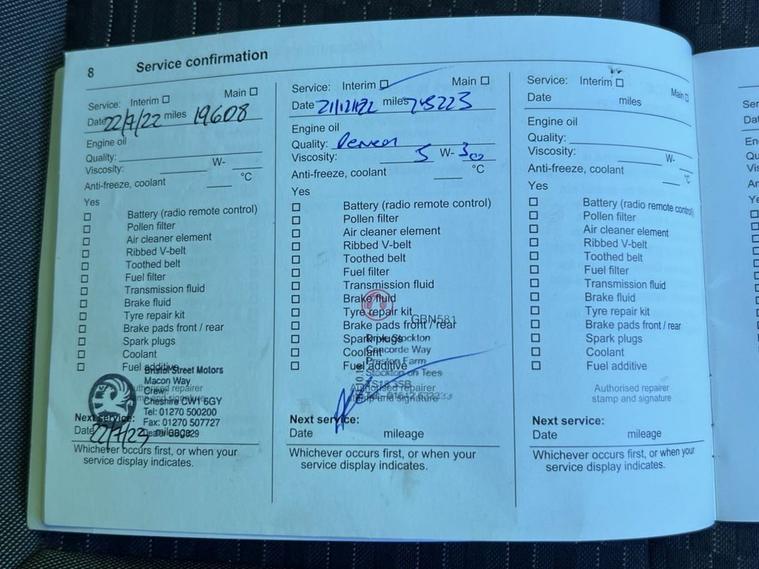 8 Service confirmation
Service: Interim ☐ Main ☐
Date 22/7/22 miles 19608
Engine oil
Quality:
Viscosity: W-
Anti-freeze, coolant °C
Yes
☐ Battery (radio remote control)
☐ Pollen filter
☐ Air cleaner element
☐ Ribbed V-belt
☐ Toothed belt
☐ Fuel filter
☐ Transmission fluid
☐ Brake fluid
☐ Tyre repair kit
☐ Brake pads front / rear
☐ Spark plugs
☐ Coolant
☐ Fuel additive
Bristol Street Motors
Macon Way
Crewe
Cheshire CW1 6GY
Tel: 01270 500200
Fax: 01270 507727
Authorised repairer
stamp and signature
Next service:
Date 22/7/23 mileage
Whichever occurs first, or when your
service display indicates.
Service: Interim ☐ Main ☐
Date 21/12/22 miles
Engine oil
Quality:
Viscosity: 5 W- 30
Anti-freeze, coolant °C
Yes
☐ Battery (radio remote control)
☐ Pollen filter
☐ Air cleaner element
☐ Ribbed V-belt
☐ Toothed belt
☐ Fuel filter
☐ Transmission fluid
☐ Brake fluid
☐ Tyre repair kit
GBN581
☐ Brake pads front / rear
☐ Spark plugs
☐ Coolant
☐ Fuel additive
Stockton
Concorde Way
Preston Farm
Stockton on Tees
Authorised repairer
stamp and signature
Next service:
Date mileage
Whichever occurs first, or when your
service display indicates.
Service: Interim ☐ Main ☐
Date miles
Engine oil
Quality:
Viscosity: W-
Anti-freeze, coolant °C
Yes
☐ Battery (radio remote control)
☐ Pollen filter
☐ Air cleaner element
☐ Ribbed V-belt
☐ Toothed belt
☐ Fuel filter
☐ Transmission fluid
☐ Brake fluid
☐ Tyre repair kit
☐ Brake pads front / rear
☐ Spark plugs
☐ Coolant
☐ Fuel additive
Authorised repairer
stamp and signature
Next service:
Date mileage
Whichever occurs first, or when your
service display indicates.